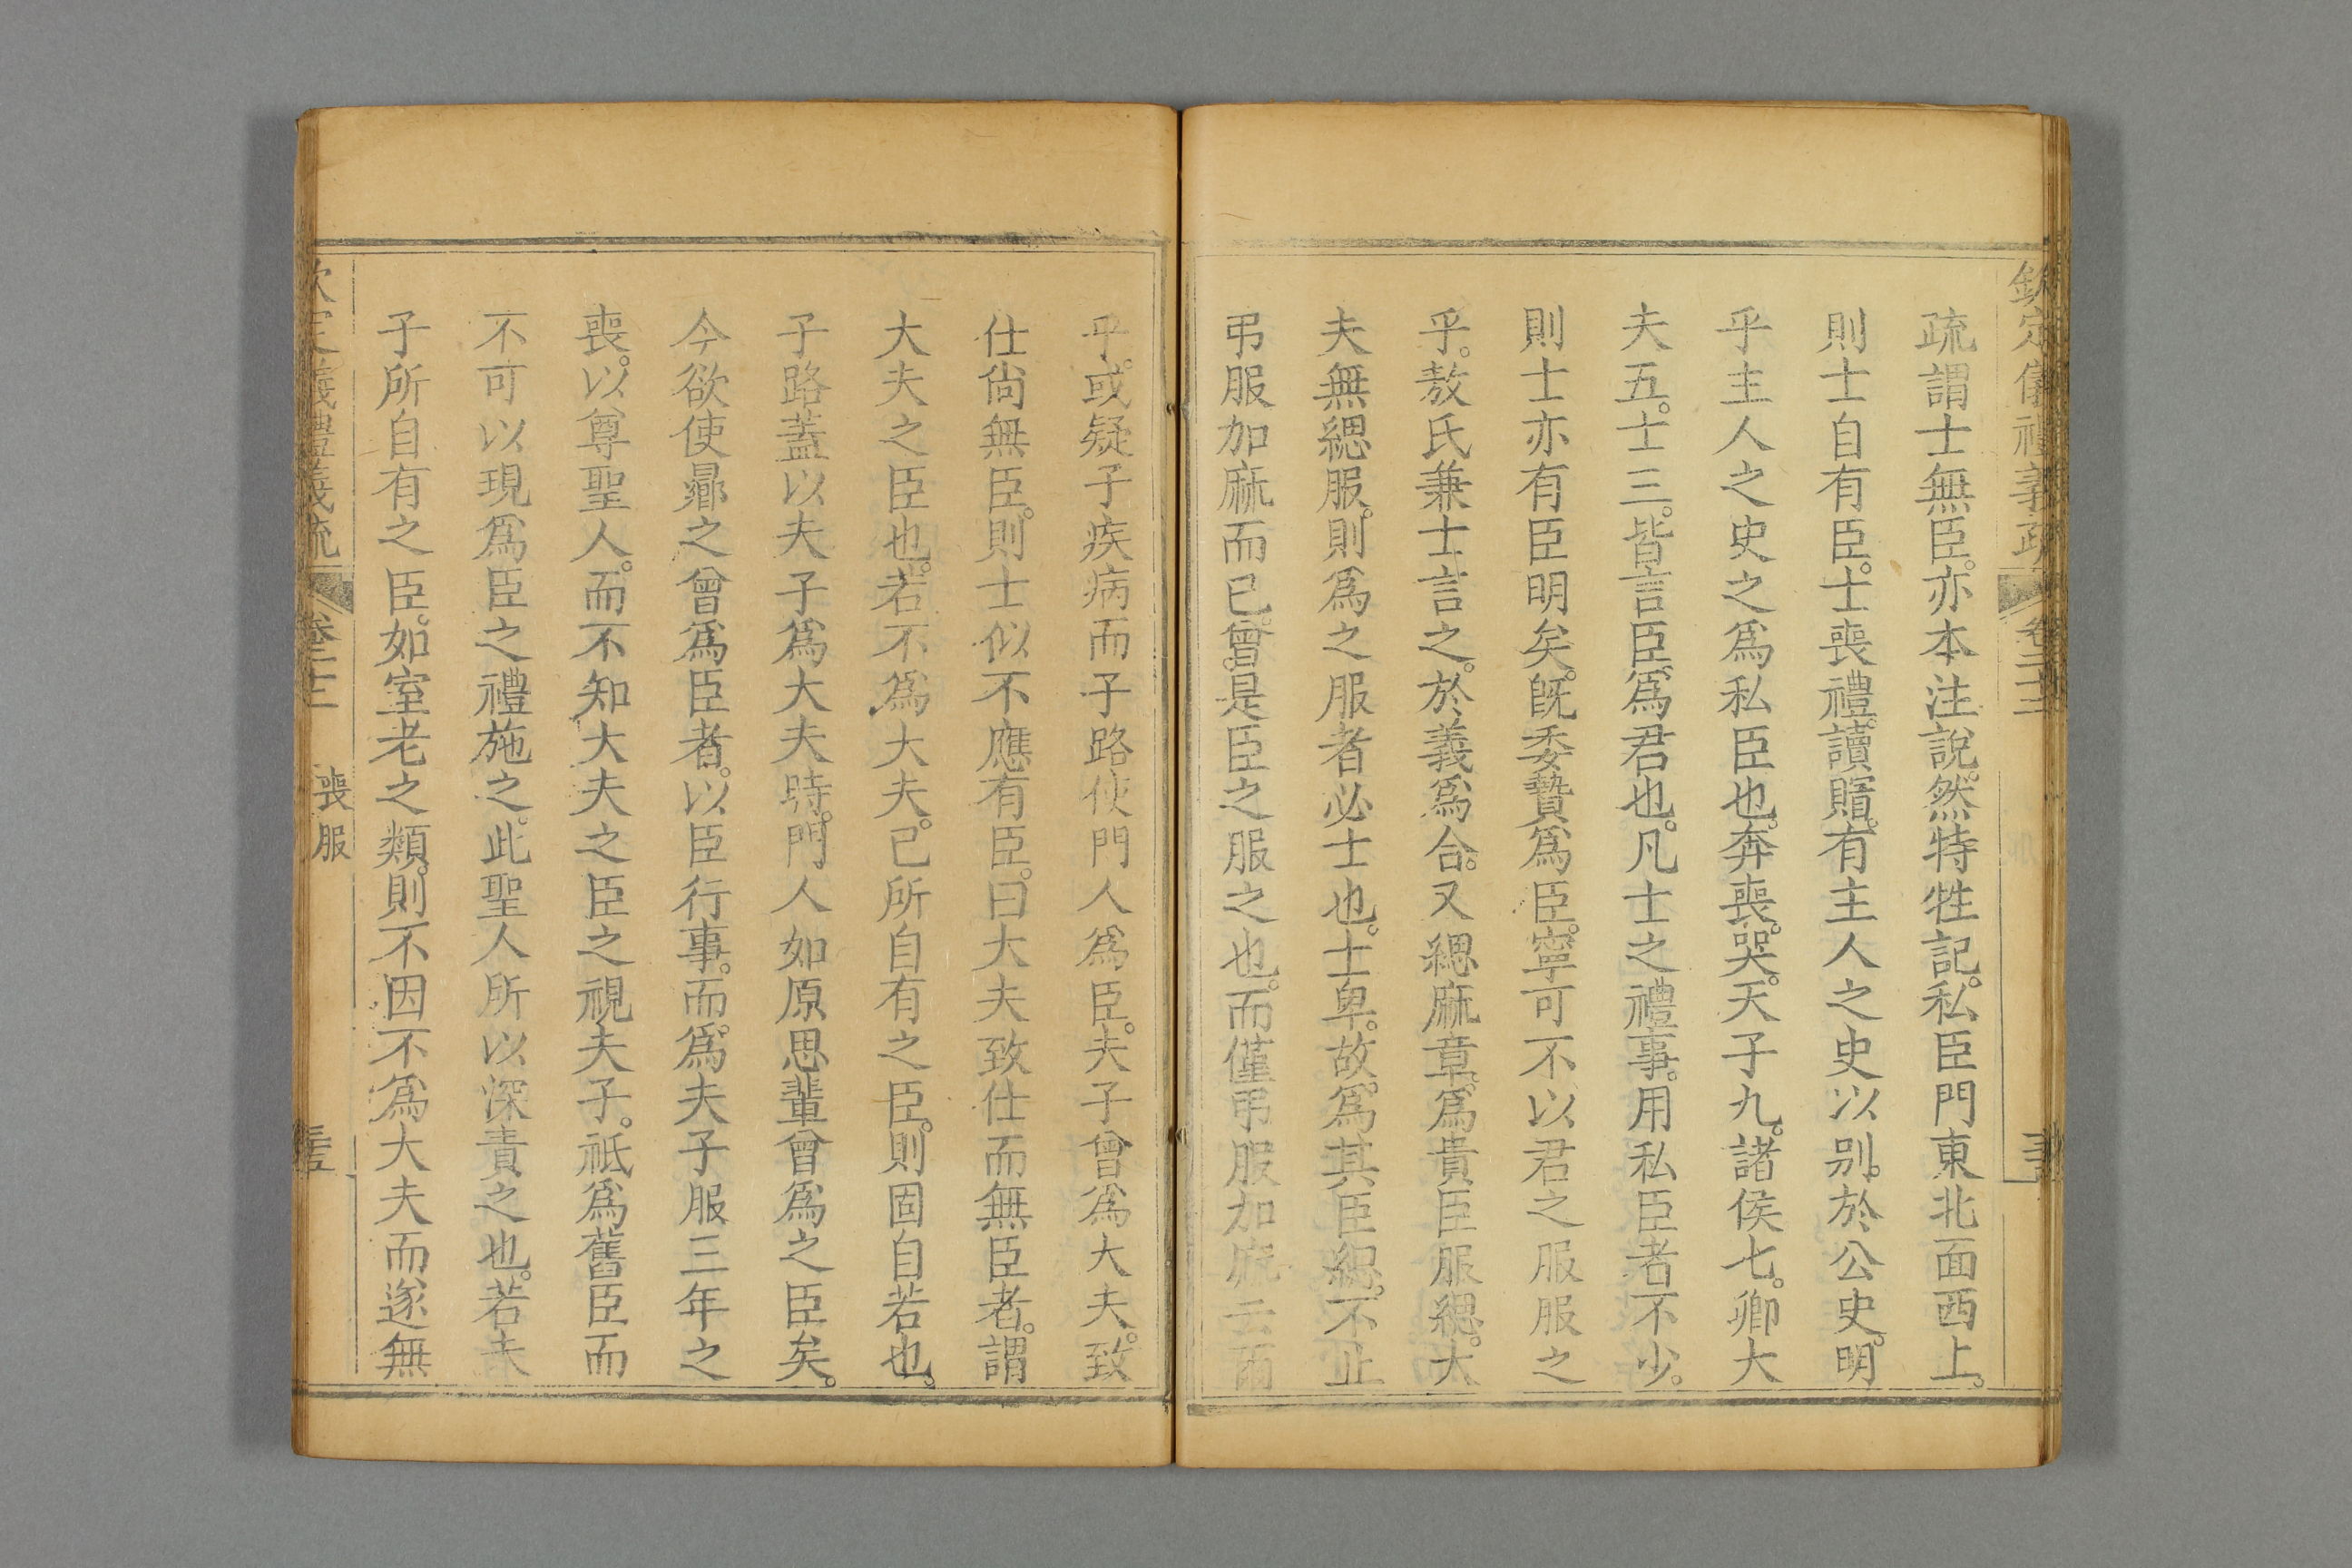 欽定儀禮義疏 卷二十三
疏謂士無臣。亦本注說。然特牲記。私臣門東北面西上。
則士自有臣。士喪禮。讀賵。有主人之史以别。於公史。明
乎主人之史之爲私臣也。奔喪。哭。天子九。諸侯七。卿大
夫五。士三。皆言臣。爲君也。凡士之禮事。用私臣者不少。
則士亦有臣明矣。旣委贄爲臣。寧可不以君之服服之
乎。敖氏兼士言之。於義爲合。又緦麻章。爲貴臣服緦。大
夫無緦服。則爲之服者必士也。士卑。故。爲其臣緦。不止
弔服加麻而已。曾。是臣之服之也。而僅弔服加麻云爾
乎。或疑子疾病而子路使門人爲臣。夫子曾爲大夫。致
仕尙無臣。則士似不應有臣。曰大夫致仕而無臣者。謂
大夫之臣也。若不爲大夫。已所自有之臣。則固自若也。
子路蓋以夫子爲大夫時。門人如原思輩曾爲之臣矣。
今欲使曏之曾爲臣者。以臣行事。而。爲夫子服三年之
喪。以尊聖人。而不知大夫之臣之視夫子。祗爲舊臣而
不可以現爲臣之禮施之。此聖人所以深責之也。若夫
子所自有之臣。如室老之類。則不因不爲大夫而遂無
欽定儀禮義疏 卷二十三 喪服